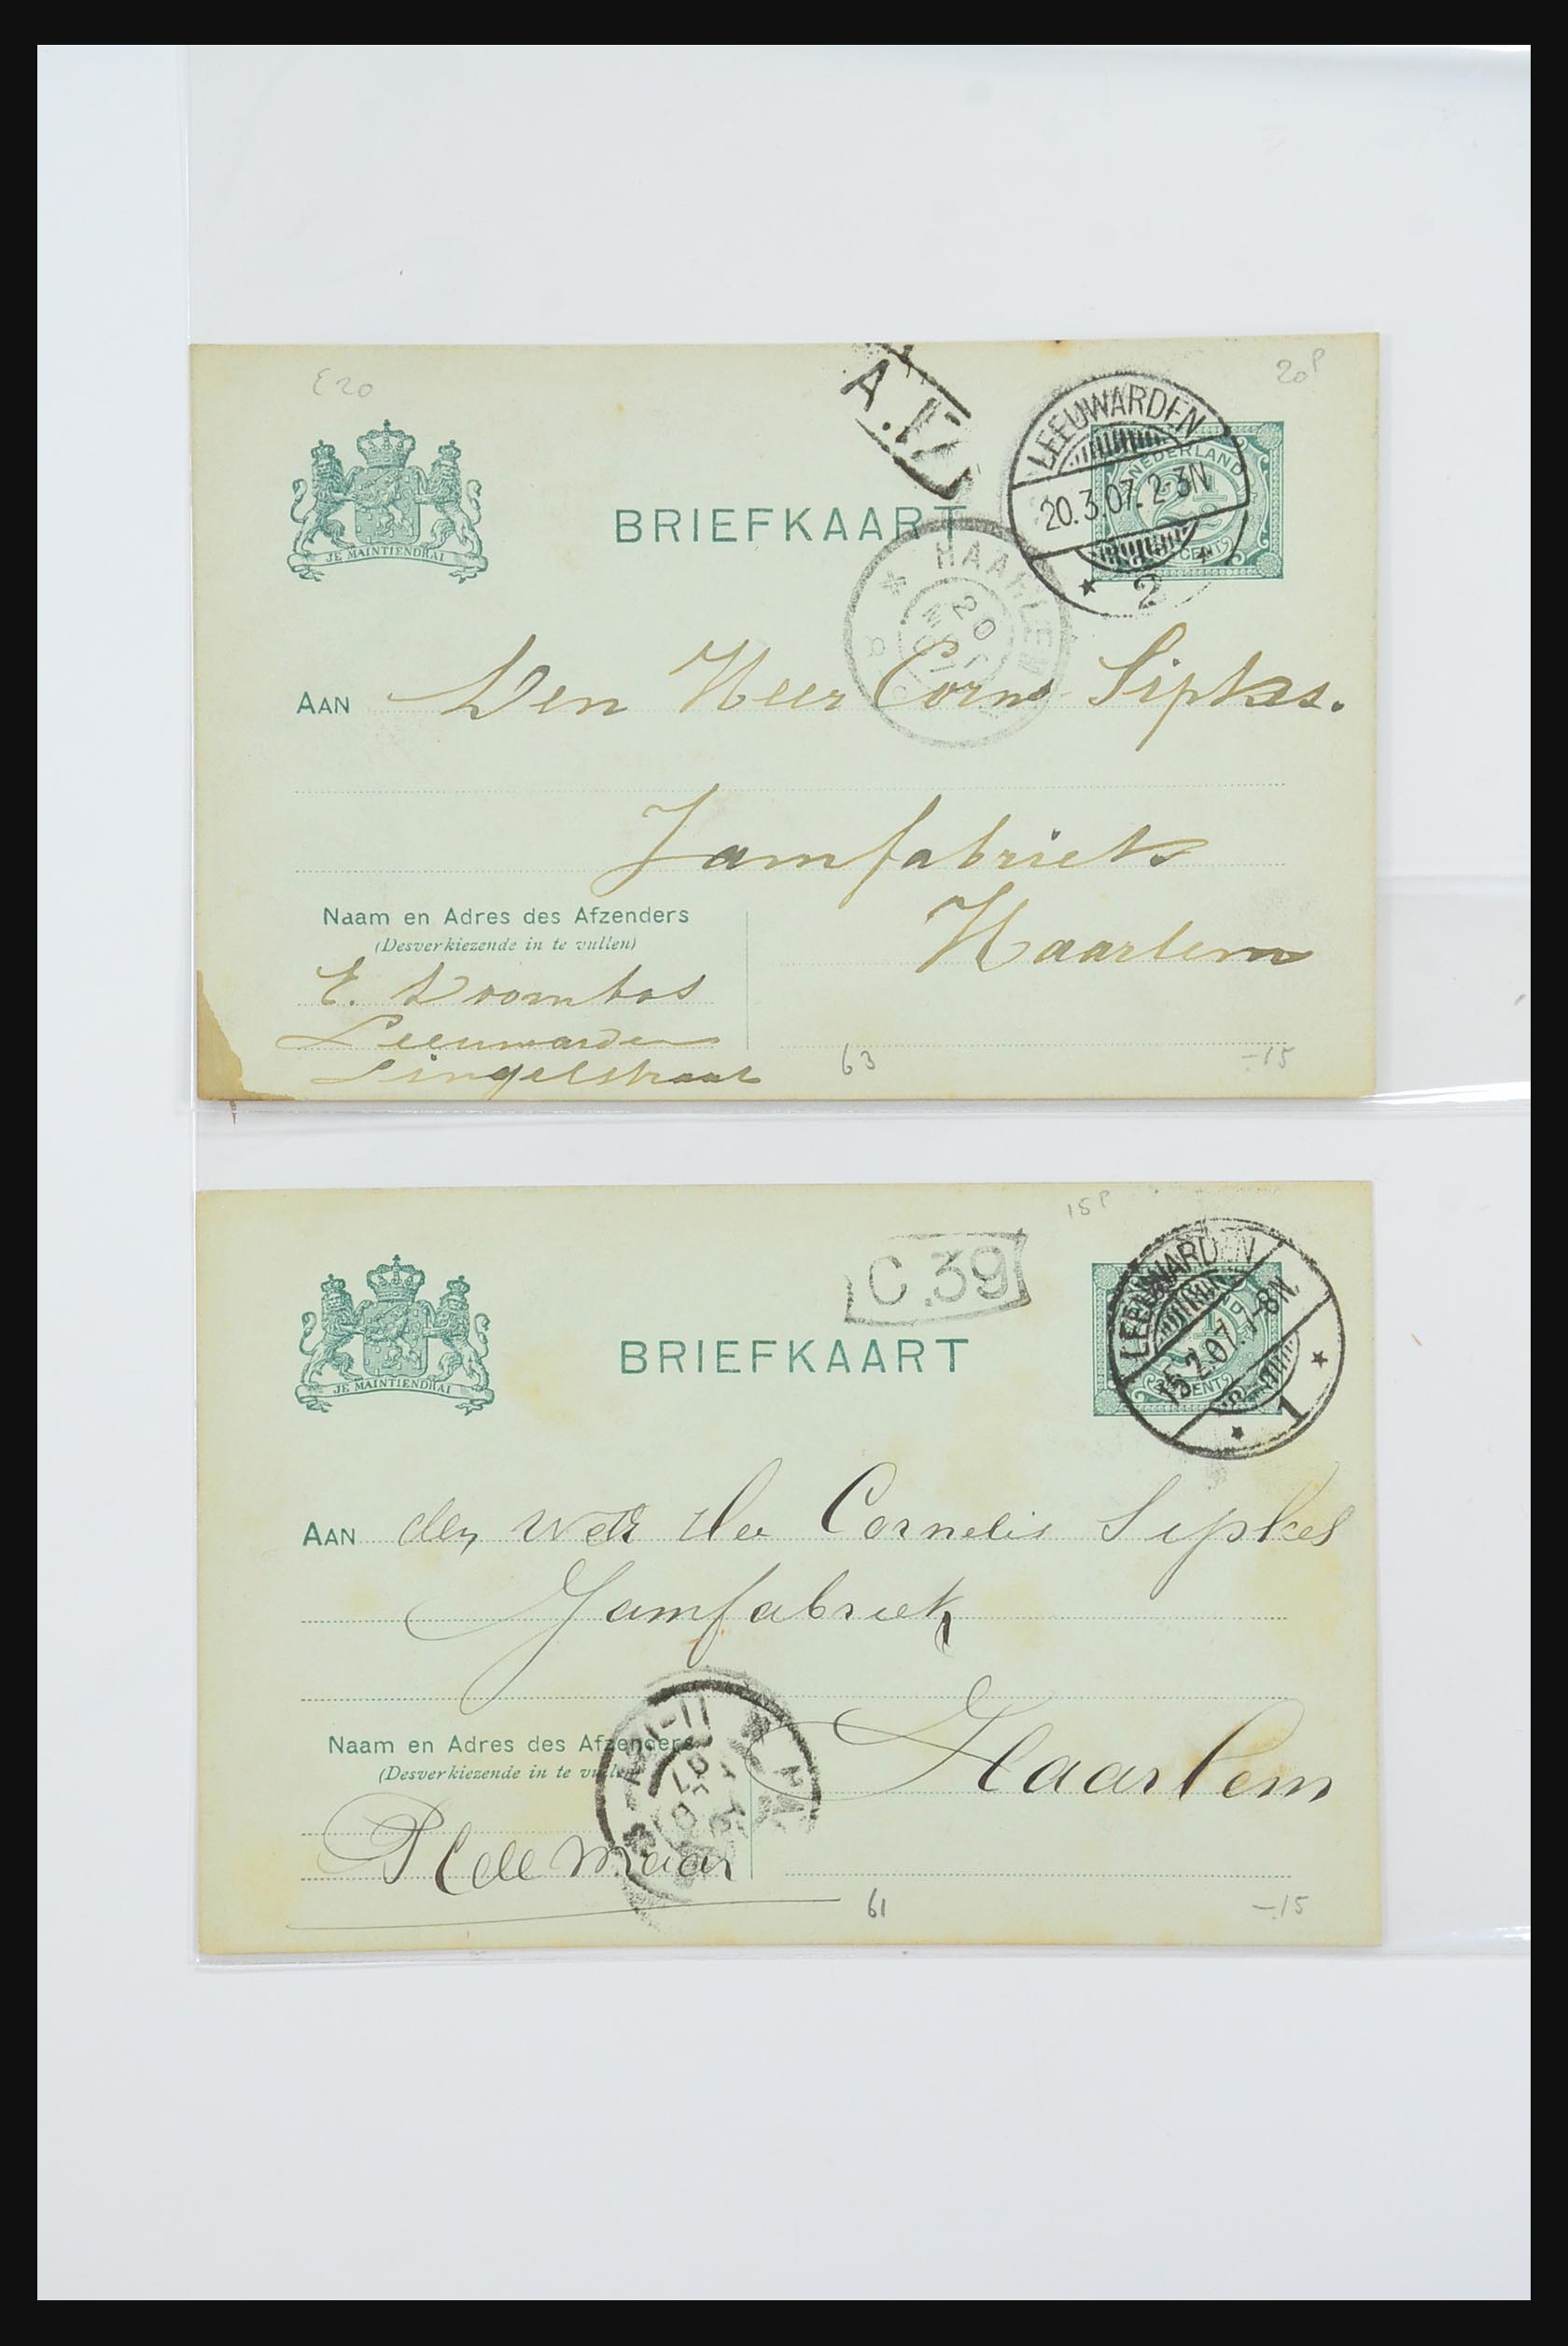 E20
20P
A.
LEEUWARDEN
20.3.07. 2-3N
2
NEDERLAND
2½
CENT
JE MAINTIENDRAI
BRIEFKAART
HAARLEM
20
AAN Den Heer Corns Sipkes.
Jamfabriek
Naam en Adres des Afzenders
(Desverkiezende in te vullen)
Haarlem
E. Doornbos
Leeuwarden
Singelstraat
63
-15
15P
C.39
LEEUWARDEN
15.2.07. 7-8N.
1
CENT
JE MAINTIENDRAI
BRIEFKAART
AAN den Cornelis Sipkes
Jamfabriek
Naam en Adres des Afzenders
(Desverkiezende in te vullen)
11-12
07
Haarlem
61
-.15